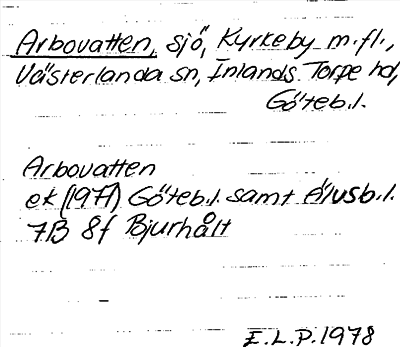 Arbovatten, sjö, Kyrkeby m.fl.,
Västerlanda sn, Inlands Torpe hd,
Göteb.l.
Arbovatten
ek (1977) Göteb.l. samt Älvsb.l.
7B 8f Bjurhålt
E.L.P. 1978